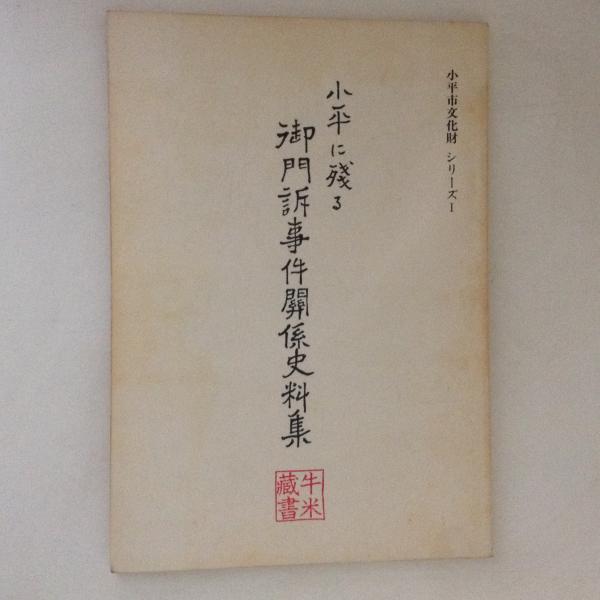 小平市文化財 シリーズI
小平に殘る
御門訴事件關係史料集
牛米
藏書